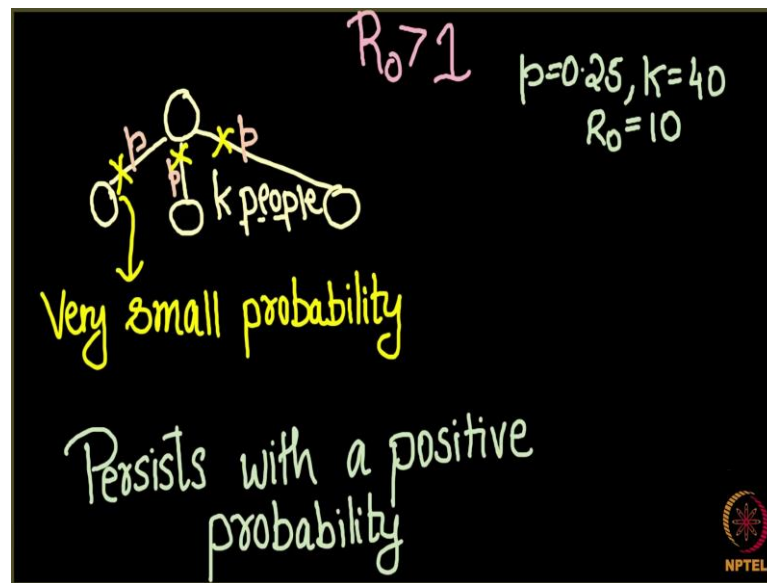 R₀>1
p=0.25, k=40
R₀=10
p p
p
k people
Very small probability
Persists with a positive
probability
NPTEL